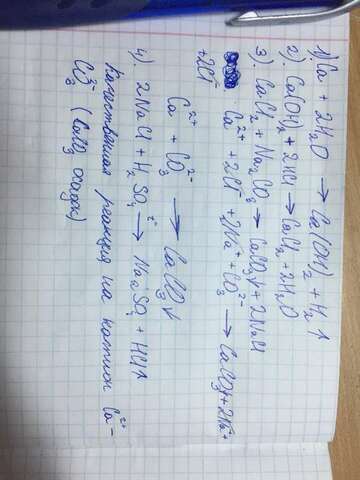 1) Ca + 2H₂O → Ca(OH)₂ + H₂↑
2) Ca(OH)₂ + 2HCl → CaCl₂ + 2H₂O
3) CaCl₂ + Na₂CO₃ → CaCO₃↓ + 2NaCl
Ca²⁺ + 2Cl⁻ + 2Na⁺ + CO₃²⁻ → CaCO₃↓ + 2Na⁺ +
+ 2Cl⁻
Ca²⁺ + CO₃²⁻ → CaCO₃↓
4) 2NaCl + H₂SO₄ →ᵗ Na₂SO₄ + HCl↑
Качественная реакция на катион Ca²⁺ –
CO₃²⁻ (CaCO₃ осадок)